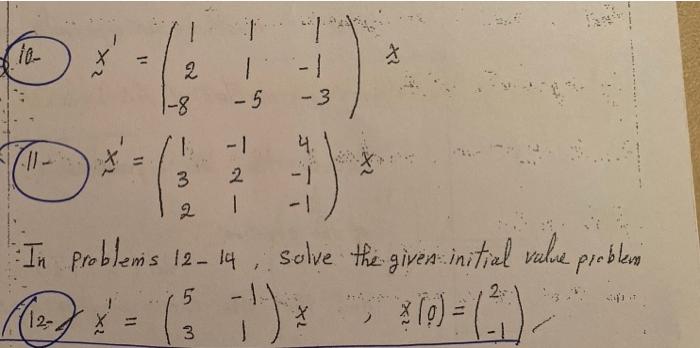 10- x' = ( 1 1 1 ) x
2 1 -1
-8 -5 -3
11- x' = ( 1 -1 4 ) x
3 2 -1
2 1 -1
In problems 12-14, solve the given initial value problem
12- x' = ( 5 -1 ) x , x(0) = ( 2 )
3 1 -1